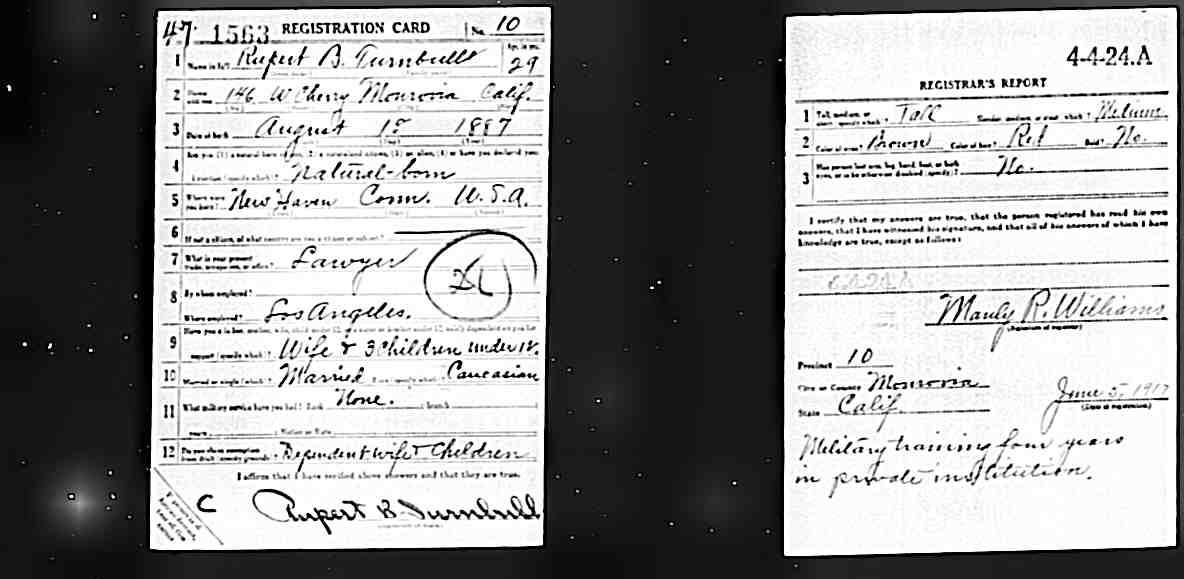 47 1563 REGISTRATION CARD No. 10
1 Name in full Rupert B. Turnbull Age, in yrs. 29
2 Home address 146 W Cherry Monrovia Calif.
3 Date of birth August 1st 1887
4 Are you (1) a natural-born citizen, (2) a naturalized citizen, (3) an alien, (4) or have you declared your
intention (specify which)? Natural-born
5 Where were you born? New Haven Conn. U.S.A.
6 If not a citizen, of what country are you a citizen or subject?
7 What is your present trade, occupation, or office? Lawyer
8 By whom employed?
Where employed? Los Angeles.
9 Have you a father, mother, wife, child under 12, or a sister or brother under 12, solely dependent on you for
support (specify which)? Wife & 3 Children under 12.
10 Married or single (which)? Married Race (specify which)? Caucasian
11 What military service have you had? Rank None. ; branch
years ; Nation or State
12 Do you claim exemption from draft (specify grounds)? Dependent wife & Children
I affirm that I have verified above answers and that they are true.
C Rupert B. Turnbull
4-4-24.A
REGISTRAR'S REPORT
1 Tall, medium, or short (specify which)? Tall Slender, medium, or stout (which)? Medium
2 Color of eyes? Brown Color of hair? Red Bald? No.
3 Has person lost arm, leg, hand, foot, or both
eyes, or is he otherwise disabled (specify)? No.
I certify that my answers are true, that the person registered has read his own
answers, that I have witnessed his signature, and that all of his answers of which I have
knowledge are true, except as follows:
4-4-24.A
Manly R. Williams
(Signature of registrar)
Precinct 10
City or County Monrovia
State Calif. June 5, 1917
(Date of registration)
Military training four years
in private institution.